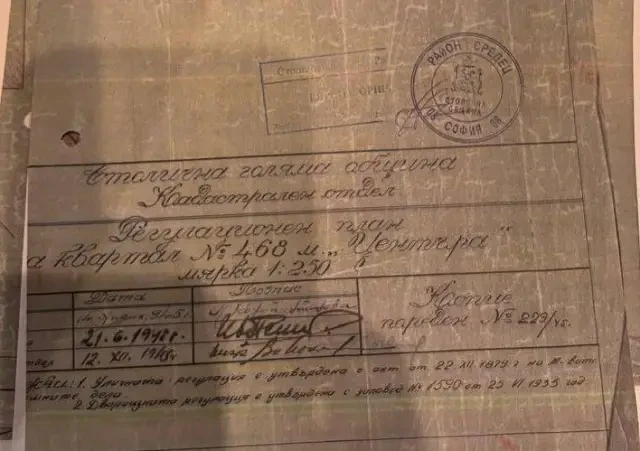 РАЙОН СРЕДЕЦ
СТОЛИЧНА
ОБЩИНА
08 СОФИЯ 08
Столична голяма община
Кадастрален отдел
Регулационен план
а квартал № 468 м. „Центъра“
мярка 1:250
Дата
Подпис
Копие
21.6.1948г.
парован № 229/48.
12. XII. 1948г.
1. Уличната регулация е утвърдена с акт от 22 XII 1879 г на М-вото
дела
2. Дворищната регулация е утвърдена с заповед № 1590 от 25 VI 1935 год.